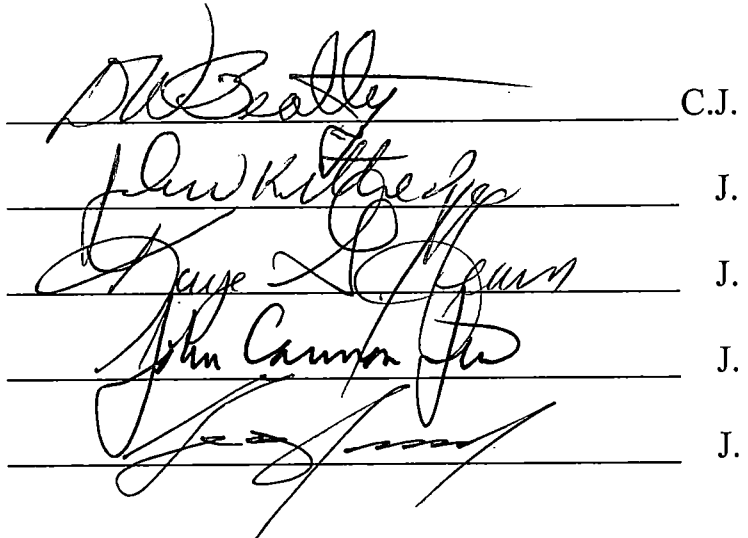 DWBeatty C.J.
John W Kittredge J.
Kaye G Hearn J.
John Cannon Few J.
J.